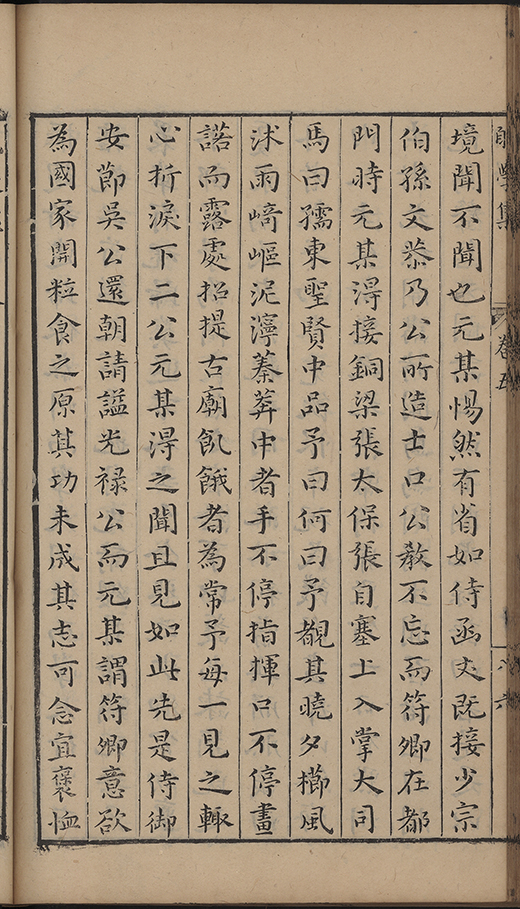 境聞不聞也元某惕然有省如侍函丈既接少宗
伯孫文恭乃公所造士口公教不忘而符卿在都
門時元某得接銅梁張太保張自塞上入掌大司
馬曰孺東聖賢中品予曰何曰予覩其曉夕櫛風
沐雨崎嶇泥濘蓁莽中者手不停指揮口不停畫
諾而露處招提古廟飢餓者為常予每一見之輒
心折淚下二公元某得之聞且見如此先是侍御
安節吳公還朝請謚光祿公而元某謂符卿意欲
為國家開粒食之原其功未成其志可念宜褒恤
學集
卷五